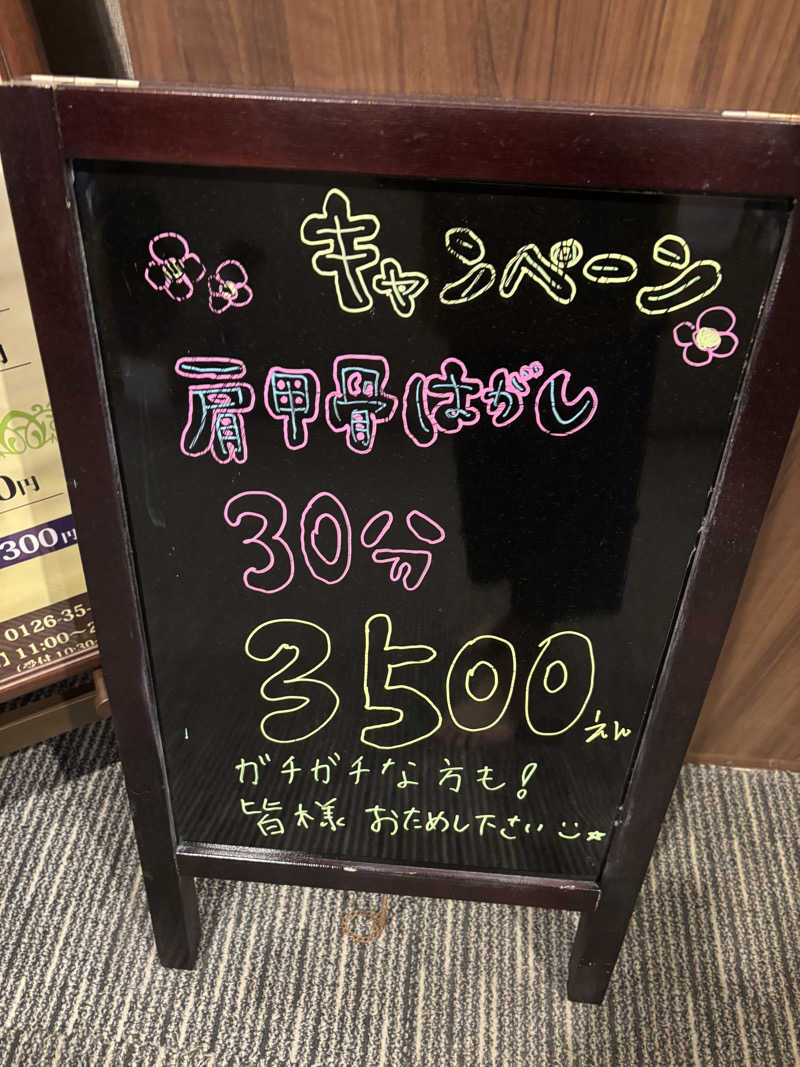 キャンペーン
肩甲骨はがし
30分
3500えん
ガチガチな方も!
皆様 おためし下さい
0円
300円
0126-35-
11:00〜2
(受付 10:30